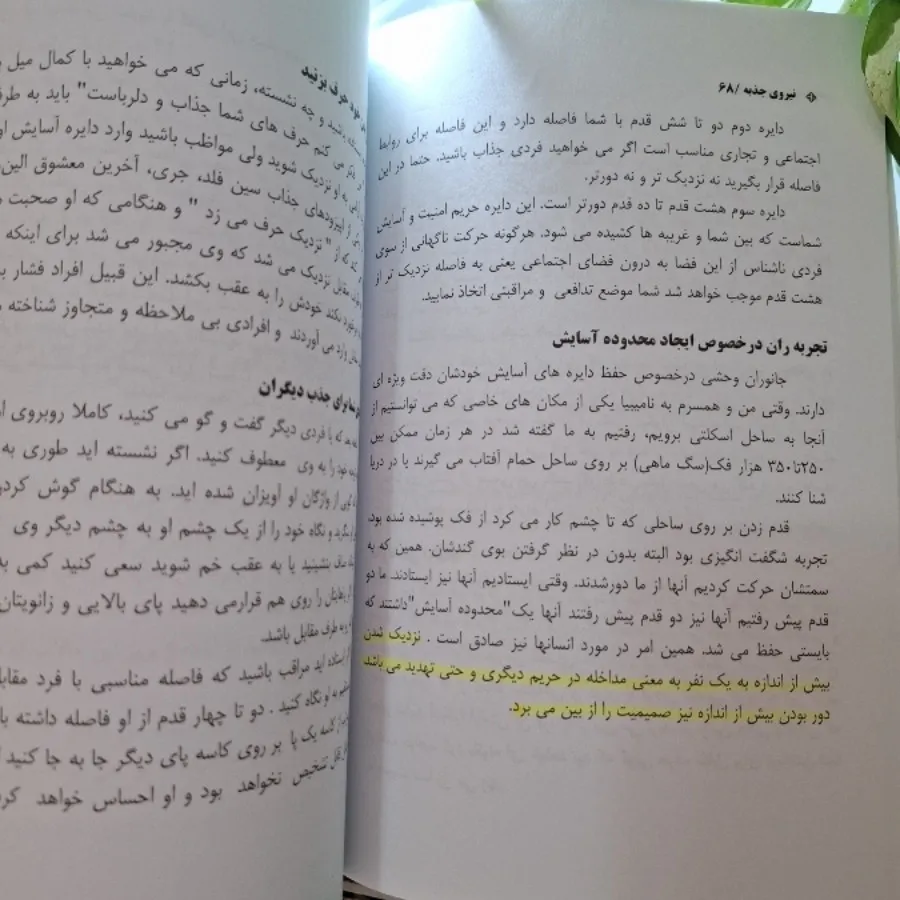 نیروی جذبه /۶۸
دایره دوم دو تا شش قدم با شما فاصله دارد و این فاصله برای روابط
اجتماعی و تجاری مناسب است اگر می خواهید فردی جذاب باشید. حتما در این
فاصله قرار بگیرید نه نزدیک تر و نه دورتر.
دایره سوم هشت قدم تا ده قدم دورتر است. این دایره حریم امنیت و آسایش
شماست که بین شما و غریبه ها کشیده می شود. هرگونه حرکت ناگهانی از سوی
فردی ناشناس از این فضا به درون فضای اجتماعی یعنی به فاصله نزدیک تر از
هشت قدم موجب خواهد شد شما موضع تدافعی و مراقبتی اتخاذ نمایید.
تجربه ران درخصوص ایجاد محدوده آسایش
جانوران وحشی درخصوص حفظ دایره های آسایش خودشان دقت ویژه ای
دارند. وقتی من و همسرم به نامیبیا یکی از مکان های خاصی که می توانستیم از
آنجا به ساحل اسکلتی برویم، رفتیم به ما گفته شد در هر زمان ممکن بین
۲۵۰تا۳۵۰ هزار فک(سگ ماهی) بر روی ساحل حمام آفتاب می گیرند یا در دریا
شنا کنند.
قدم زدن بر روی ساحلی که تا چشم کار می کرد از فک پوشیده شده بود،
تجربه شگفت انگیزی بود البته بدون در نظر گرفتن بوی گندشان. همین که به
سمتشان حرکت کردیم آنها از ما دورشدند. وقتی ایستادیم آنها نیز ایستادند. ما دو
قدم پیش رفتیم آنها نیز دو قدم پیش رفتند آنها یک"محدوده آسایش"داشتند که
بایستی حفظ می شد. همین امر در مورد انسانها نیز صادق است . نزدیک شدن
بیش از اندازه به یک نفر به معنی مداخله در حریم دیگری و حتی تهدید می باشد
دور بودن بیش از اندازه نیز صمیمیت را از بین می برد.
حرف بزنید
و چه نشسته، زمانی که می خواهید با کمال میل
می کنم حرف های شما جذاب و دلرباست" باید به طرف
به او نزدیک شوید ولی مواظب باشید وارد دایره آسایش او
از اپیزودهای جذاب سین فلد، جری، آخرین معشوق الین
که از " نزدیک حرف می زد " و هنگامی که او صحبت
مقابل نزدیک می شد که وی مجبور می شد برای اینکه
نکند خودش را به عقب بکشد. این قبیل افراد فشار
وارد می آوردند و افرادی بی ملاحظه و متجاوز شناخته
برای جذب دیگران
که با فردی دیگر گفت و گو می کنید، کاملا روبروی
خود را به وی معطوف کنید. اگر نشسته اید طوری به
از واژگان او آویزان شده اید. به هنگام گوش کردن
و نگاه خود را از یک چشم او به چشم دیگر وی
بنشینید یا به عقب خم شوید سعی کنید کمی به
را روی هم قرارمی دهید پای بالایی و زانویتان
به طرف مقابل باشد.
ایستاده اید مراقب باشید که فاصله مناسبی با فرد مقابل
به او نگاه کنید . دو تا چهار قدم از او فاصله داشته
از کاسه یک پا بر روی کاسه پای دیگر جا به جا کنید
تشخیص نخواهد بود و او احساس خواهد کرد